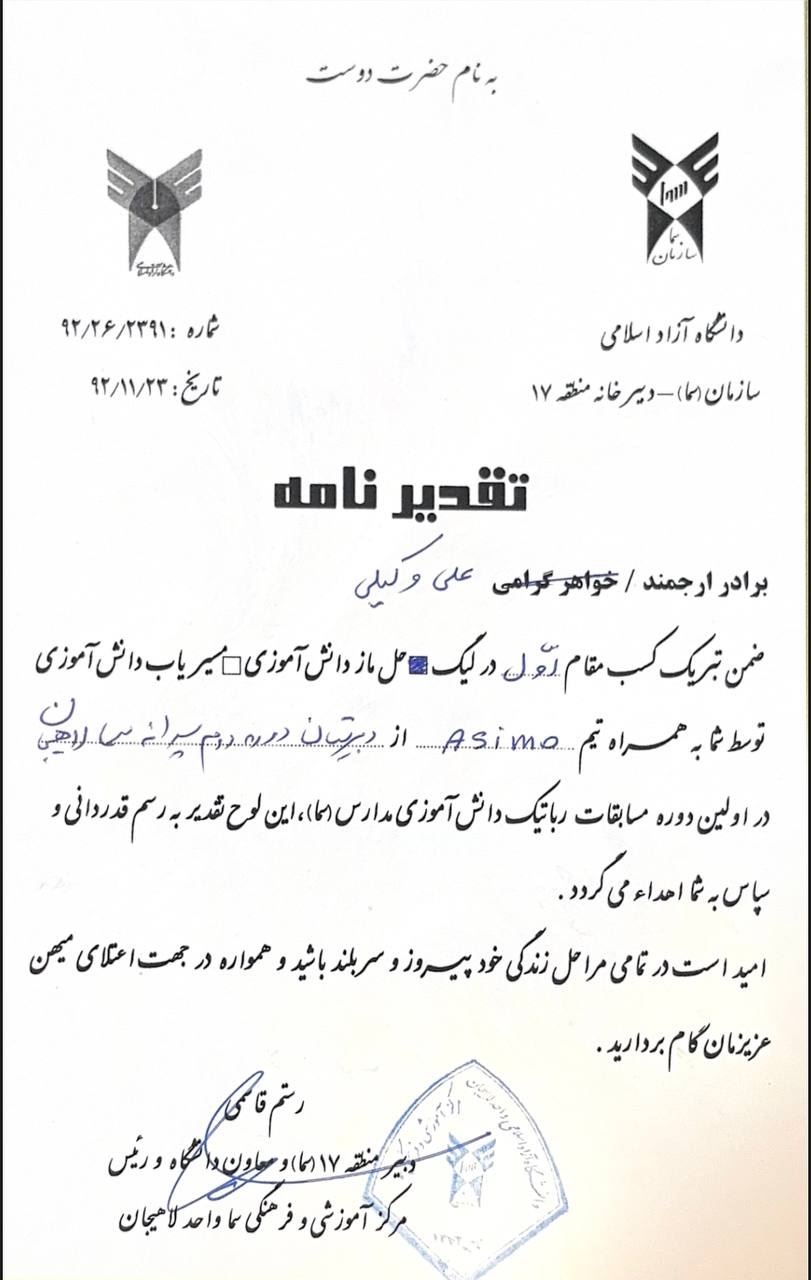 به نام حضرت دوست
سما
سازمان سما
دانشگاه آزاد اسلامی
سازمان (سما) – دبیرخانه منطقه ۱۷
شماره : ۹۲/۲۶/۲۳۹۱
تاریخ : ۹۲/۱۱/۲۳
تقدیر نامه
برادر ارجمند / خواهر گرامی علی وکیلی
ضمن تبریک کسب مقام اوّل در لیگ ■ حل ماز دانش آموزی □ مسیریاب دانش آموزی
توسط شما به همراه تیم Asimo از دبیرستان دوره دوم پسرانه سما لاهیجان
در اولین دوره مسابقات رباتیک دانش آموزی مدارس (سما)، این لوح تقدیر به رسم قدردانی و
سپاس به شما اهداء می گردد .
امید است در تمامی مراحل زندگی خود پیروز و سربلند باشید و همواره در جهت اعتلای میهن
عزیزمان گام بردارید .
رستم قاسمی
دبیر منطقه ۱۷ (سما) و معاون دانشگاه و رئیس
مرکز آموزشی و فرهنگی سما واحد لاهیجان